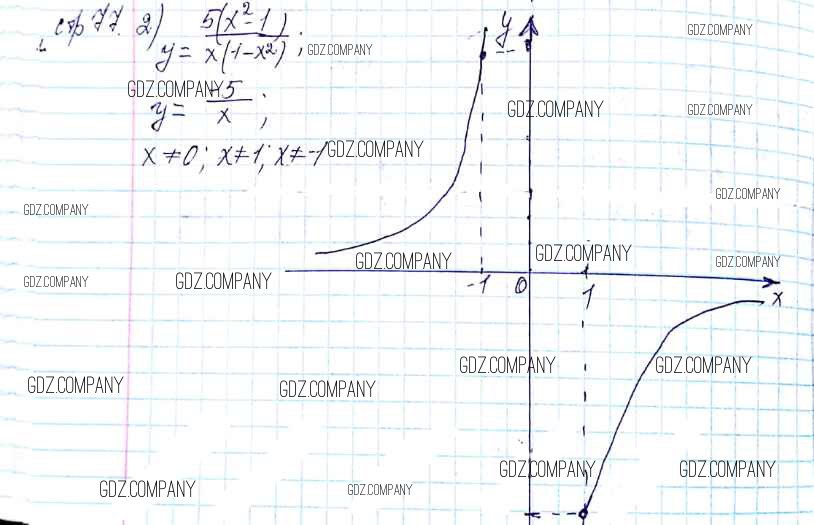 стр 77. 2) y = 5(x² - 1) / x(1 - x²) ; GDZ.COMPANY
GDZ.COMPANY
GDZ.COMPANY
y = -5 / x ;
x ≠ 0; x ≠ 1; x ≠ -1 GDZ.COMPANY
y
GDZ.COMPANY
GDZ.COMPANY
GDZ.COMPANY
GDZ.COMPANY
GDZ.COMPANY
GDZ.COMPANY
GDZ.COMPANY
GDZ.COMPANY
GDZ.COMPANY
-1 0 1 x
GDZ.COMPANY
GDZ.COMPANY
GDZ.COMPANY
GDZ.COMPANY
GDZ.COMPANY
GDZ.COMPANY
GDZ.COMPANY
GDZ.COMPANY